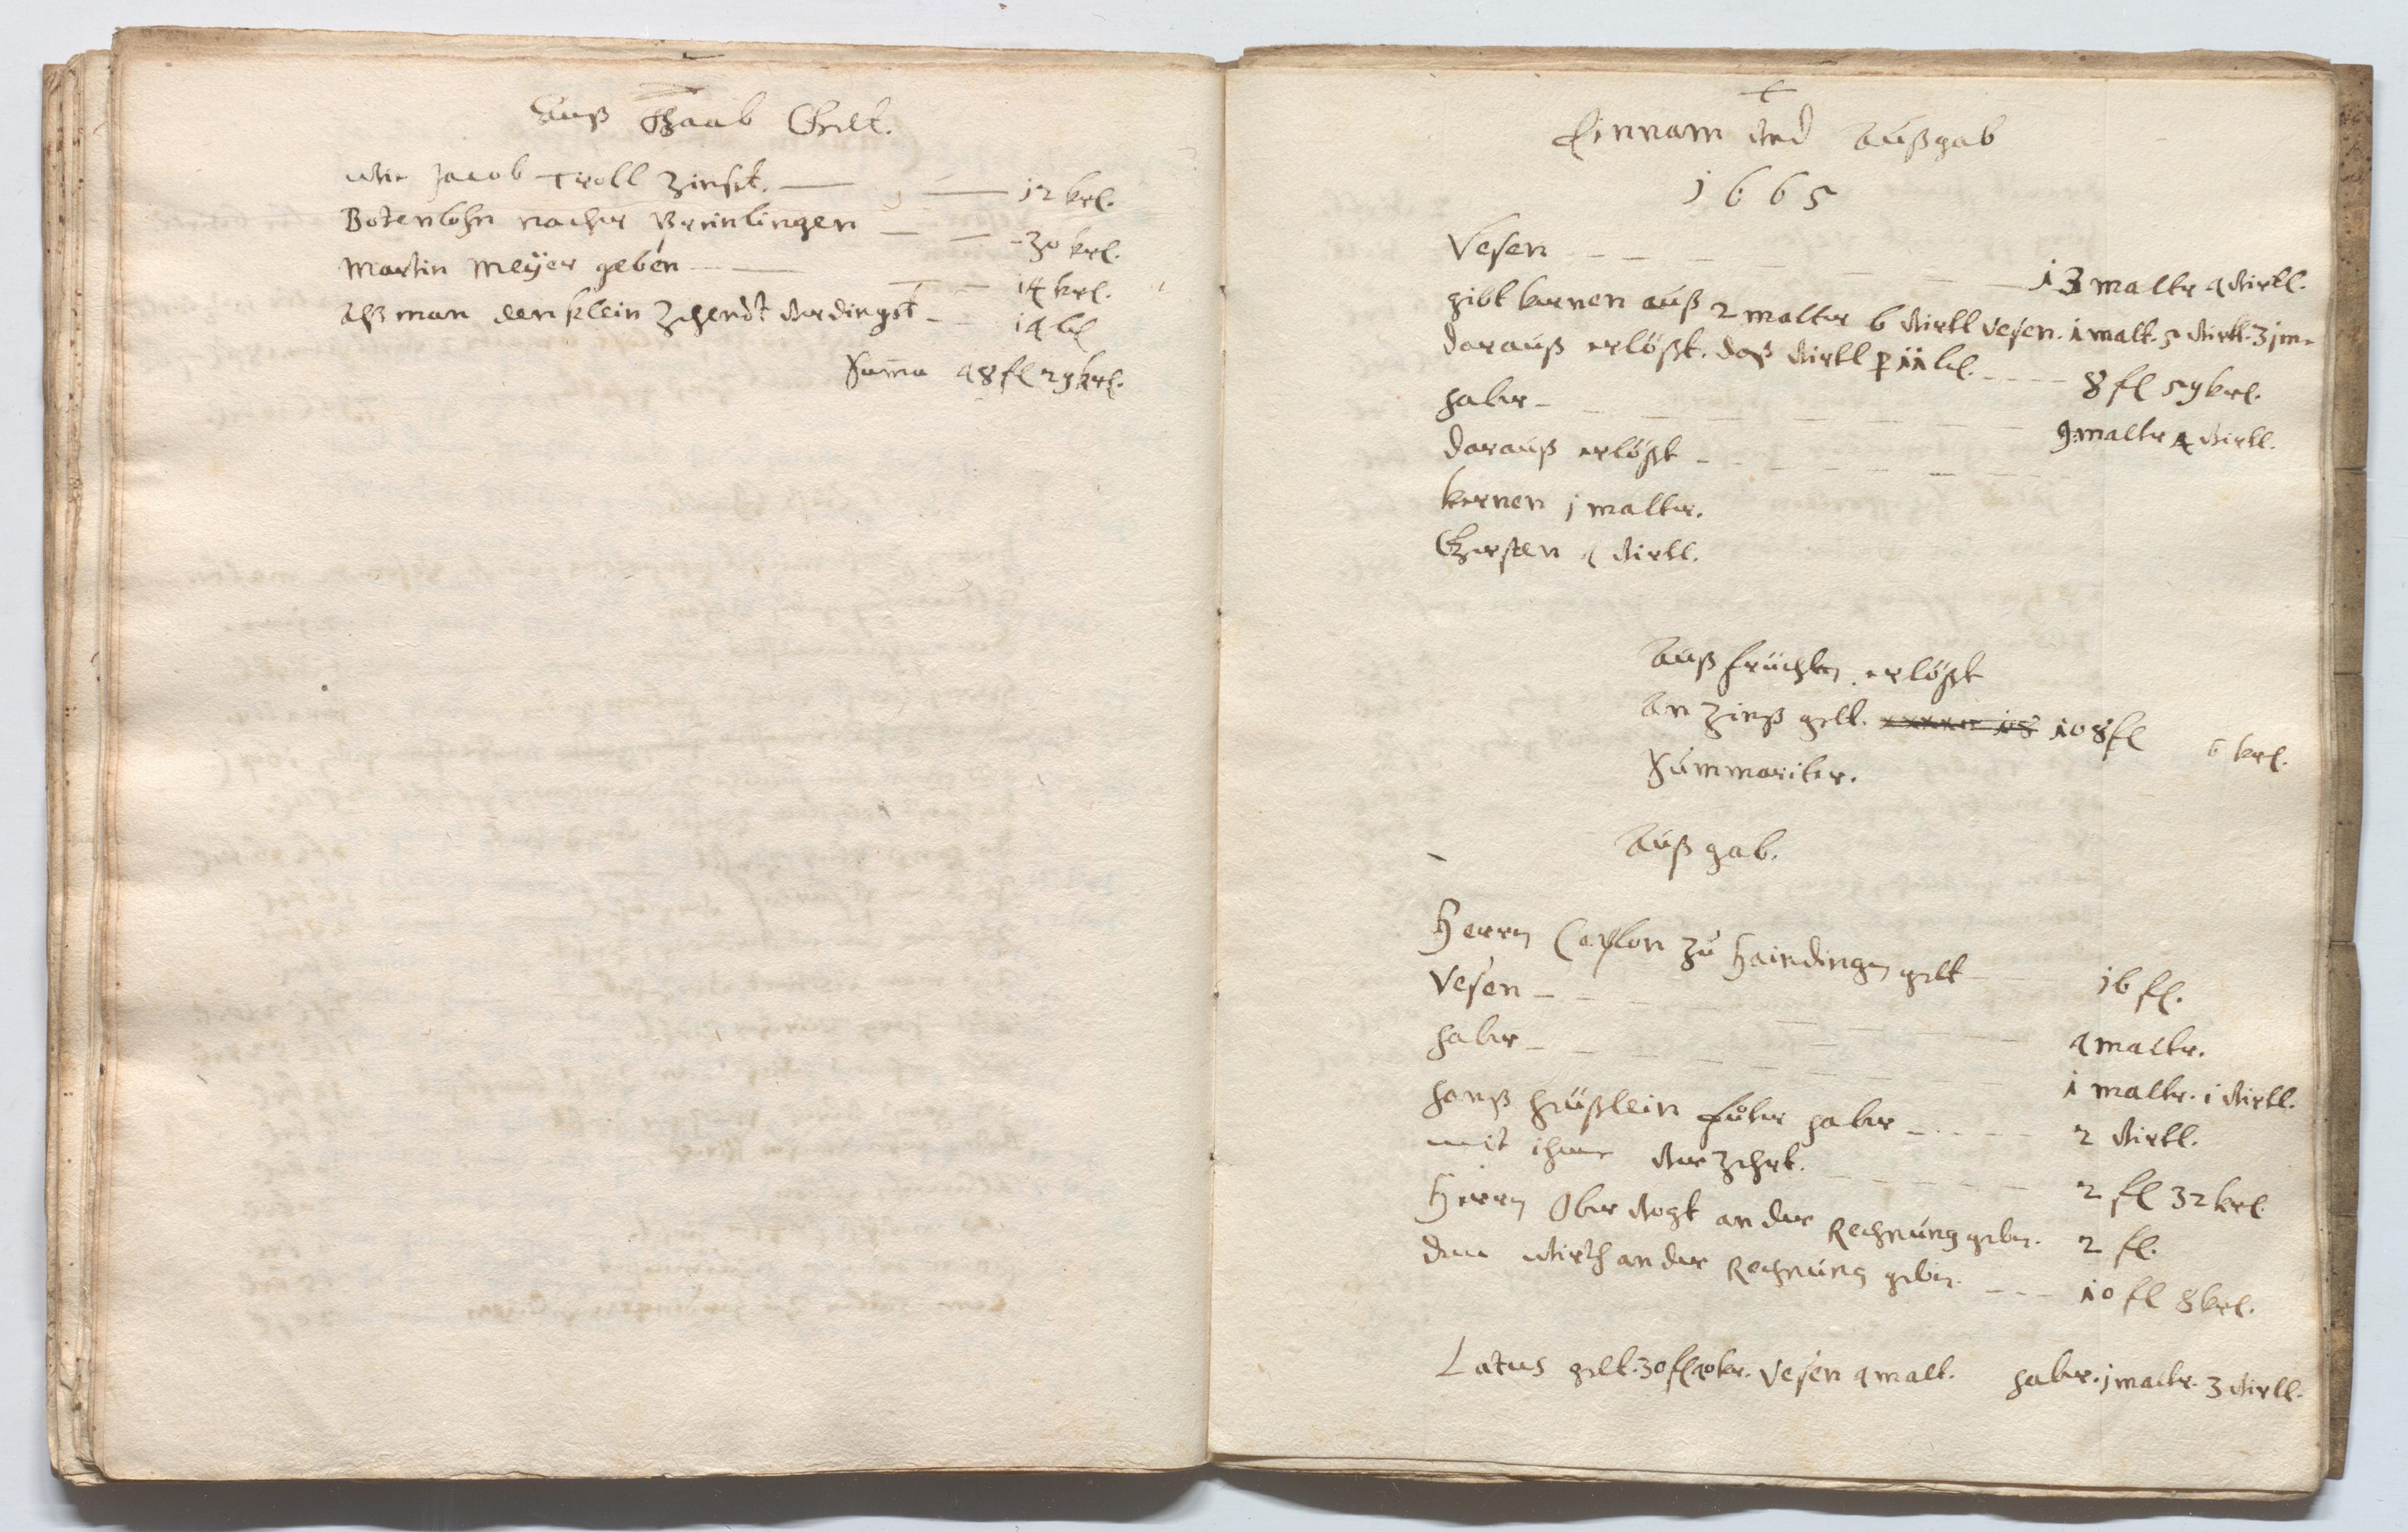 Auß Gaab Gelt.
wie Jacob Troll Zinst. 12 krl.
Botenlohn nacher Breinlingen 30 krl.
Martin Meÿer geben 14 krl.
Alß man den klein Zehendt verdingst 14 bl
Suma 48 fl 29 krl.
Einnam und Außgab
1665
Vesen 13 maltr 4 virtl.
gibt kernen auß 2 malter 6 virtl Vesen. 1 malt. 5 virtl. 3 jm.
darauß erlößt. daß virtl p 11 bl. 8 fl 59 krl.
haber 9 maltr 4 virtl.
darauß erlößt
kernen j malter.
Gersten 4 virtl.
Auß früchten erlößt
An Zinß gelt. 108 fl 6 krl.
Summariter.
Außgab.
Herrn Caplon zu Haindingen gelt 16 fl.
Vesen 4 maltr.
haber 1 maltr. 1 virtl.
hanß heüßlein fuoter haber 2 virtl.
mit ihme verzehrt. 2 fl 32 krl
Herrn Obervogt an der Rechnung geben. 2 fl.
dem wirth an der Rechnung geben. 10 fl 8 krl.
Latus gelt. 30 fl 40 kr. Vesen 4 malt. haber. j maltr. 3 virtl.